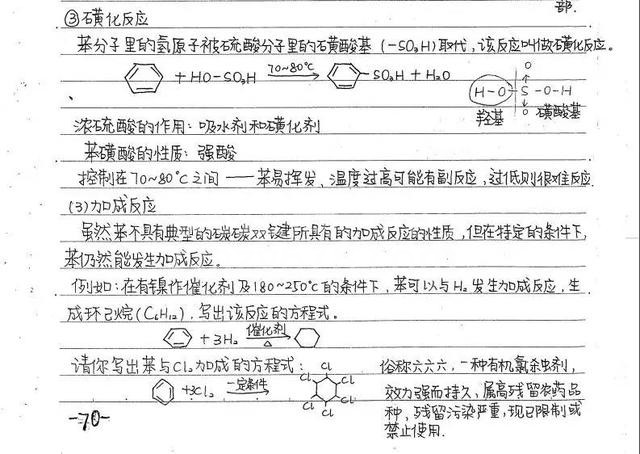 部.
③磺化反应
苯分子里的氢原子被硫酸分子里的磺酸基(-SO₃H)取代,该反应叫做磺化反应。
+ HO-SO₃H 70~80℃ -SO₃H + H₂O
O
H-O S -O-H
O
羟基 磺酸基
浓硫酸的作用: 吸水剂和磺化剂
苯磺酸的性质: 强酸
控制在70~80℃之间 —— 苯易挥发、温度过高可能有副反应,过低则很难反应
(3)加成反应
虽然苯不具有典型的碳碳双键所具有的加成反应的性质,但在特定的条件下,
苯仍然能发生加成反应。
例如:在有镍作催化剂及180~250℃的条件下,苯可以与H₂发生加成反应,生
成环己烷(C₆H₁₂),写出该反应的方程式。
+ 3H₂ 催化剂 △
请你写出苯与Cl₂加成的方程式:
+3Cl₂ 一定条件 Cl Cl Cl Cl Cl Cl
俗称六六六,一种有机氯杀虫剂,
效力强而持久,属高残留农药品
种,残留污染严重,现已限制或
禁止使用.
-70-